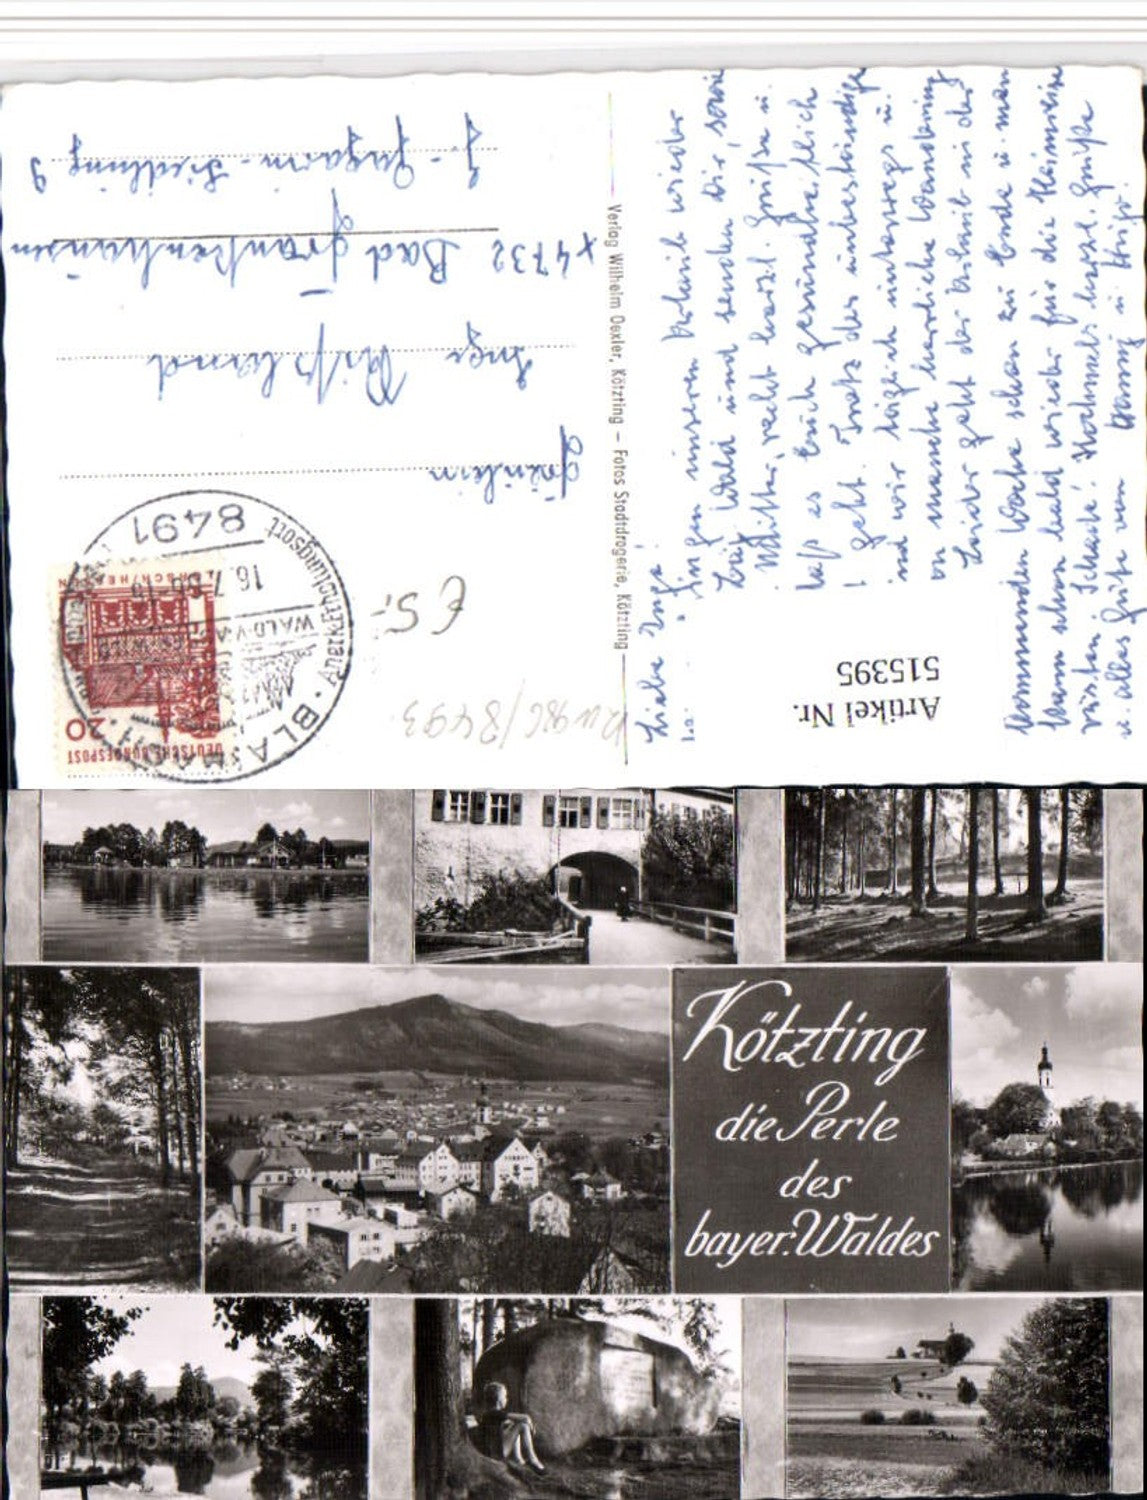 Liebe Inge!
Zingen unseren Urlaub wieder
Wald und senden Dir, sowie
Mutter, recht herzl. Grüße u.
daß es Euch gesundheitlich
geht. Trotz des unbeständigen
sind wir täglich unterwegs u.
manche herrliche Wanderung
Leider geht der Urlaub in der
kommenden Woche schon zu Ende u. man
kann schon bald wieder für die Heimreise
rüsten. Schade! Nochmals herzl. Grüße
u. alles Gute von
Artikel Nr.
515395
Verlag Wilhelm Oexler, Kötzting — Fotos Stadtdrogerie, Kötzting
DEUTSCHE BUNDESPOST
20
LORSCH/HESSEN
8491
16.7.
WALD
Anerk. Erholungsort
€ 5.-
Fräulein
Inge
x 4732 Bad Frankenhausen
J.-Gagarin-Siedlung 9
Kötzting
die Perle
des
bayer. Waldes